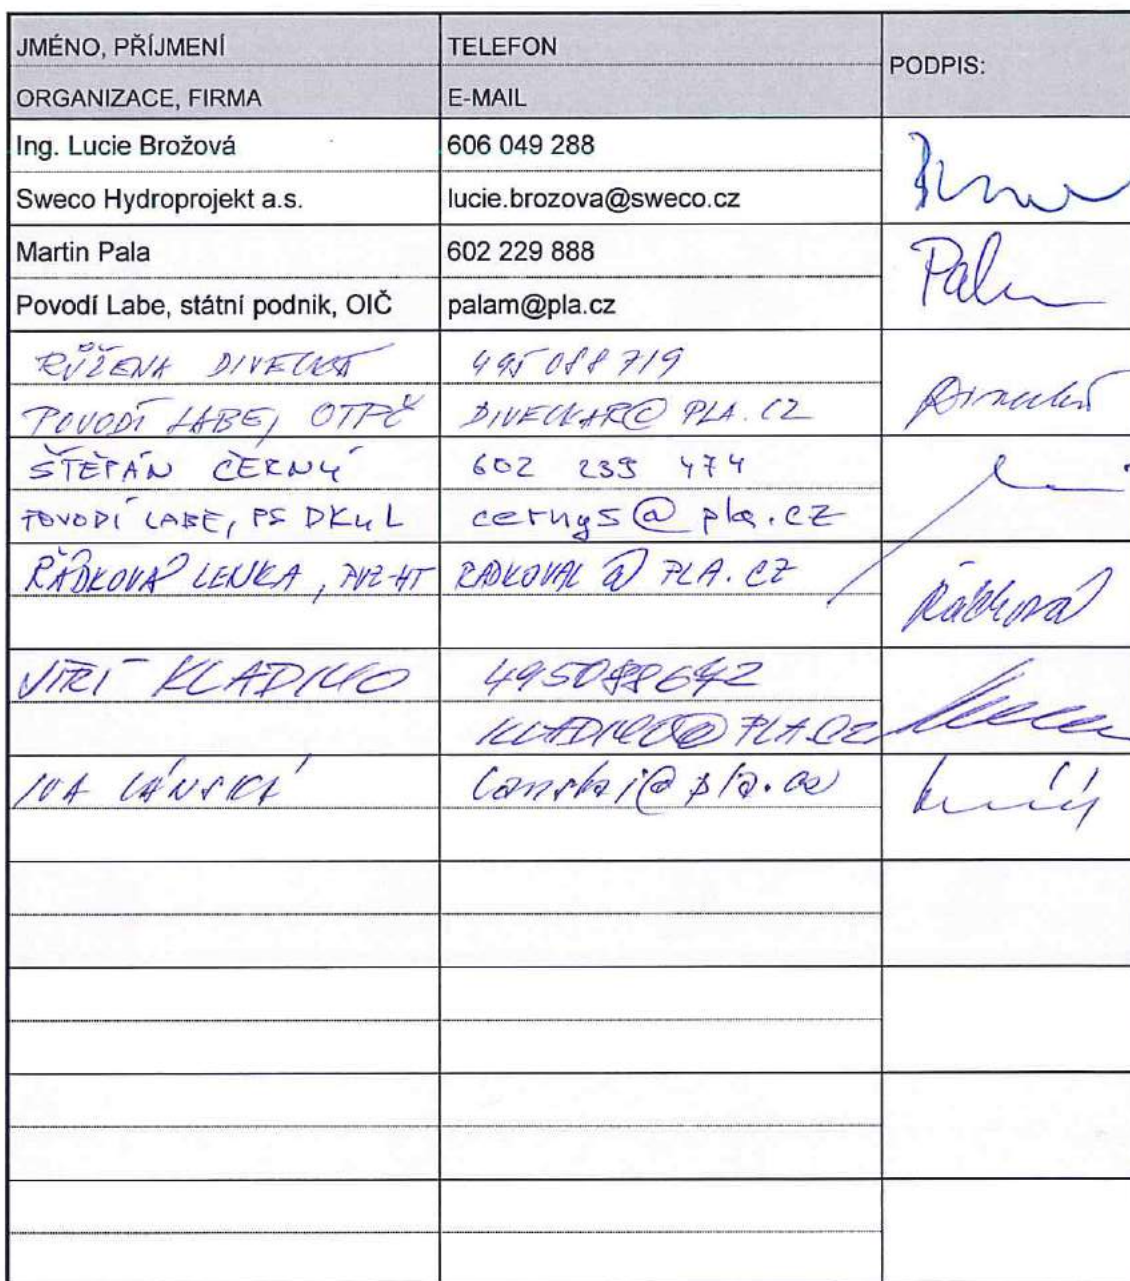 JMÉNO, PŘÍJMENÍ TELEFON
PODPIS:
ORGANIZACE, FIRMA E-MAIL
Ing. Lucie Brožová 606 049 288
Sweco Hydroprojekt a.s. lucie.brozova@sweco.cz
Martin Pala 602 229 888
Pala
Povodí Labe, státní podnik, OIČ palam@pla.cz
RŮŽENA DIVECKÁ 495 088 719
POVODÍ LABE, OTPČ DIVECKAR@PLA.CZ
ŠTĚPÁN ČERNÝ 602 239 474
POVODÍ LABE, PS DKuL cernys@pla.cz
ŘÁDKOVÁ LENKA, PVZ-HT RADKOVAL@PLA.CZ
Řádková
JIŘÍ KLADIVO 495088642
KLADIVO@PLA.CZ
IVA LÁNSKÁ lanskai@pla.cz